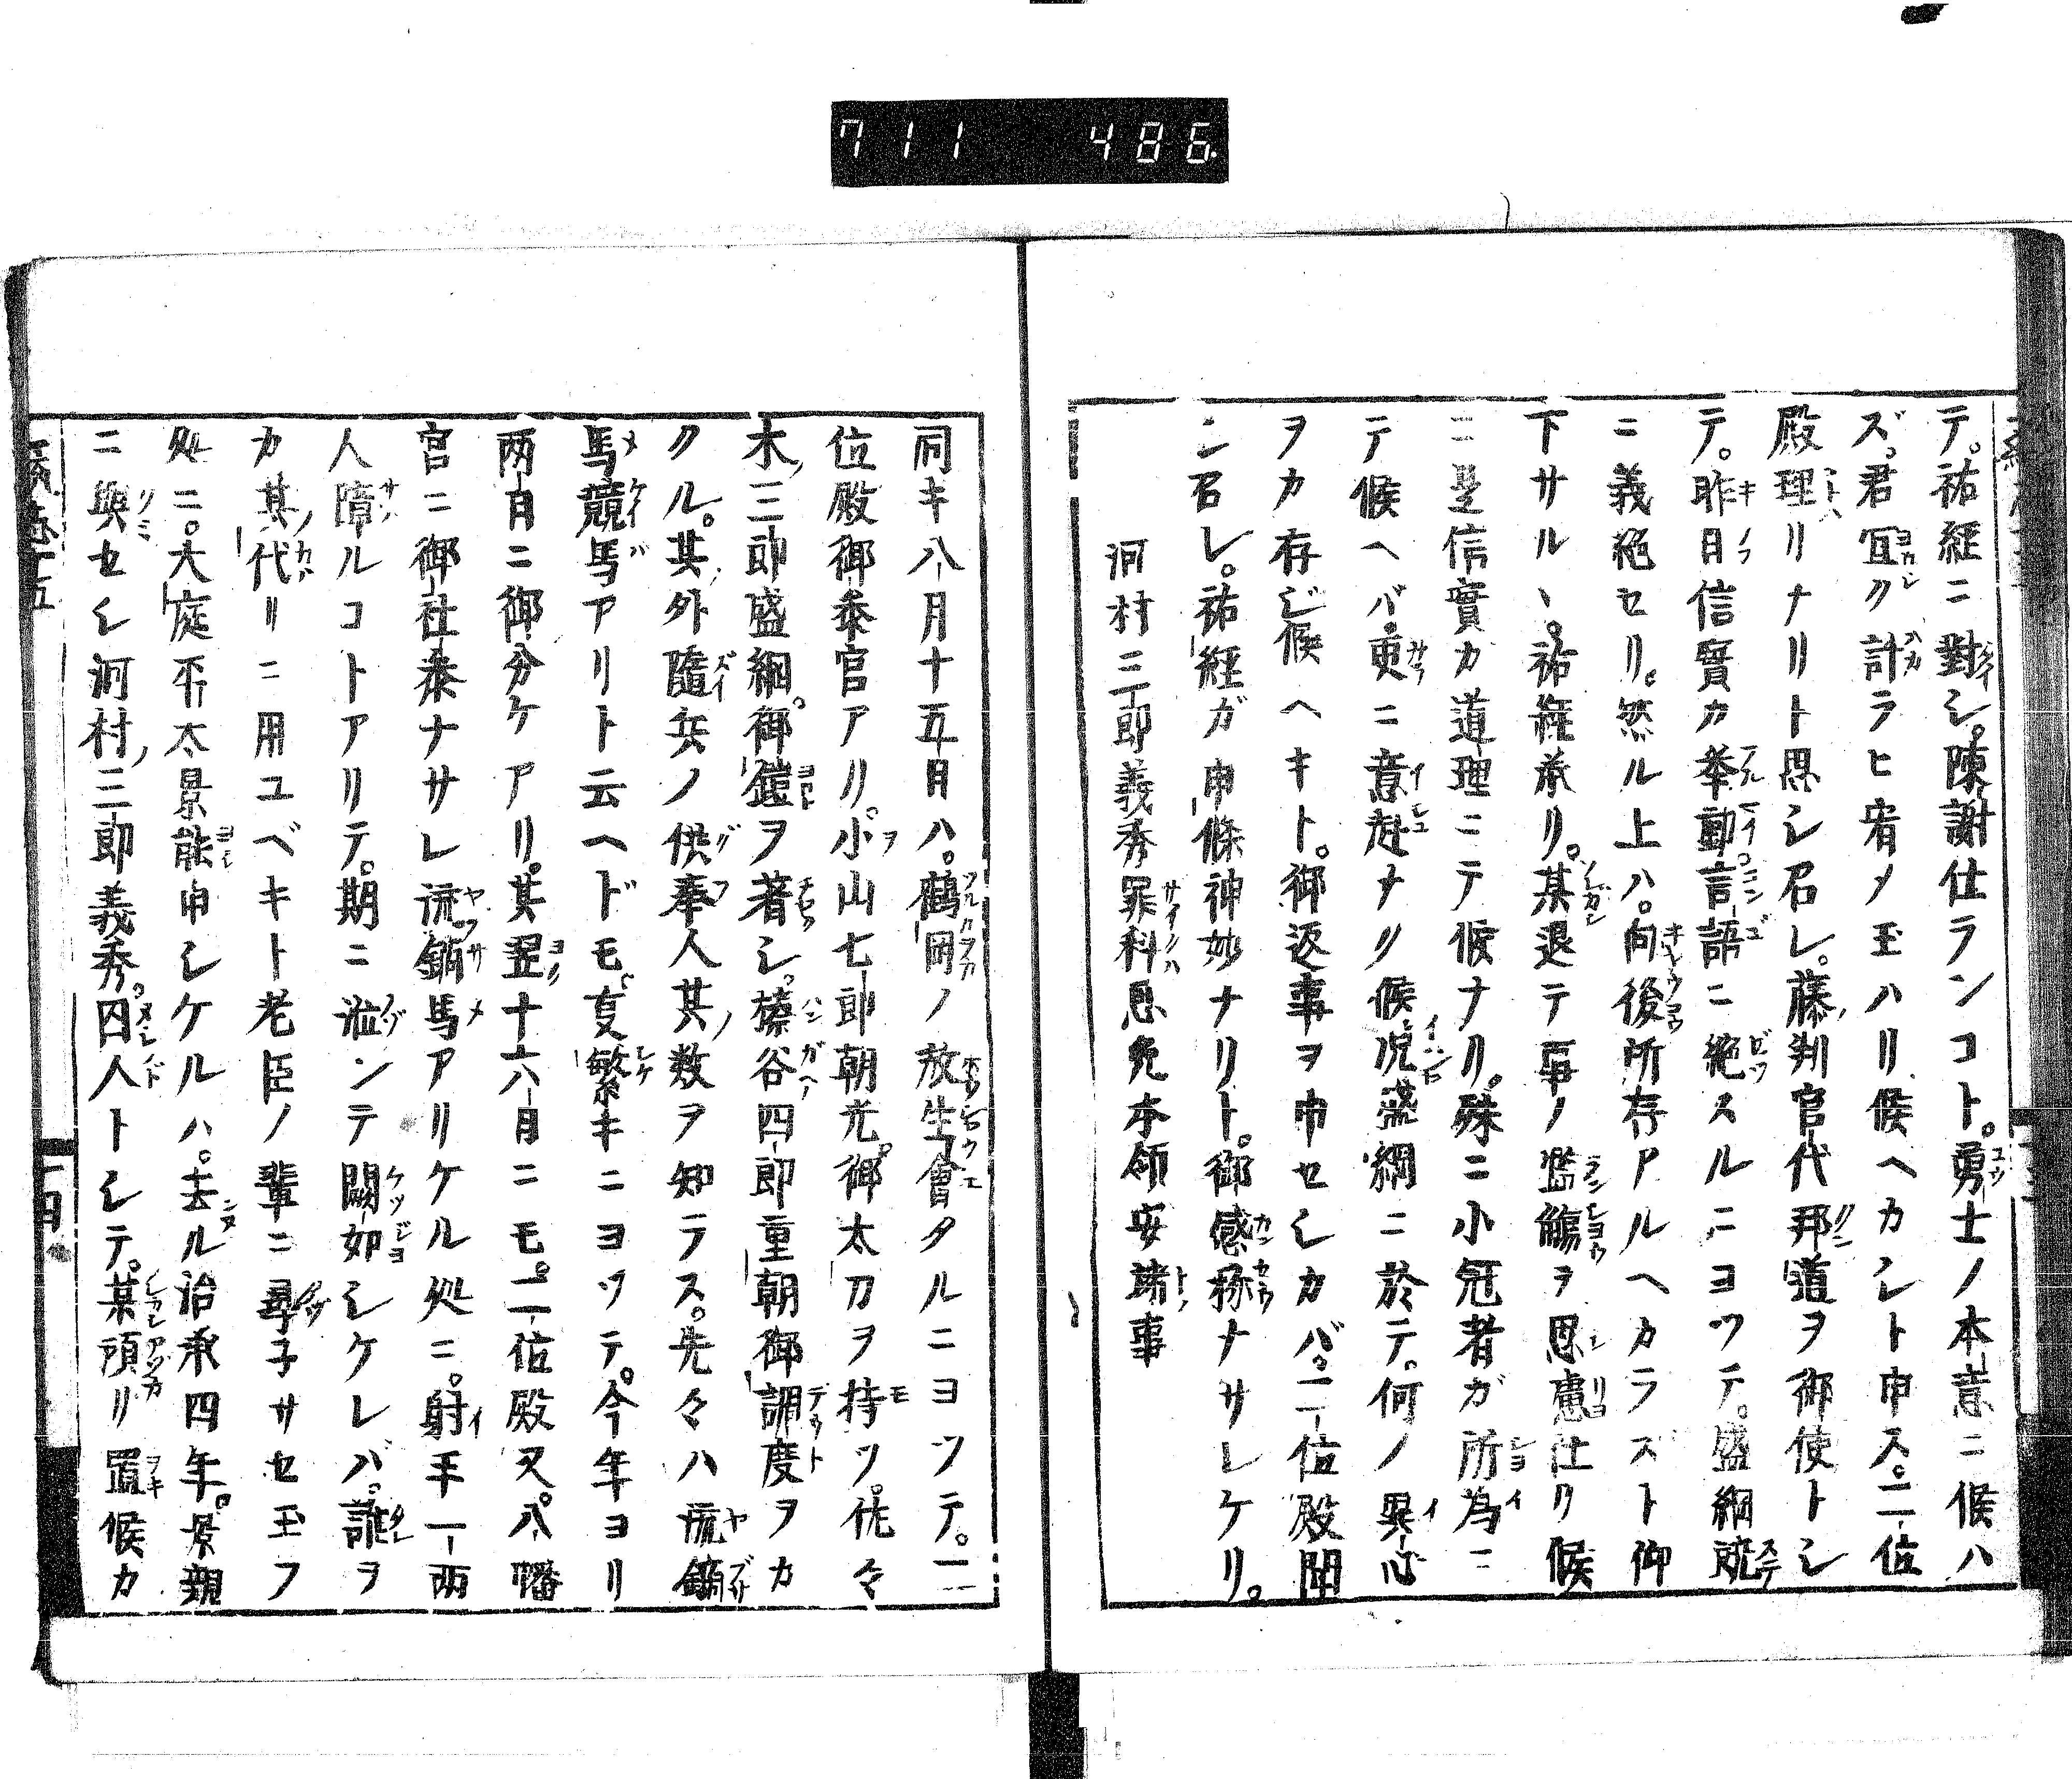 711 486
テ。祐経ニ對シ。陳謝仕ランコト。勇士ノ本意ニ候ハ
ズ。君冝ク計ラヒ宥メ玉ハリ候ヘカシト申ス。二位
殿理リナリト思シ召レ。藤判官代邦道ヲ御使トシ
テ。昨日信實カ挙動。言語ニ絶スルニヨツテ。盛綱既
ニ義絶セリ。然ル上ハ。向後所存アルヘカラズト仰
下サルヽ。祐経承リ。某退テ事ノ濫觴ヲ思慮仕リ候
ニ是信實カ道理ニテ候ナリ。殊ニ小冠者ガ所為ニ
テ候ヘバ。更ニ意趣ナリ候。况盛綱ニ於テ。何ノ異心
ヲカ存ジ候ヘキト。御返事ヲ申セシカバ。二位殿聞
シ召レ。祐経ガ申條神妙ナリト。御感称ナサレケリ。
河村三郎義秀罪科恩免本領安堵事
同キ八月十五日ハ。鶴岡ノ放生會タルニヨツテ。二
位殿御参宮アリ。小山七郎朝光。御太刀ヲ持ツ。佐々
木三郎盛綱。御鎧ヲ著シ。榛谷四郎重朝御調度ヲカ
クル。其外隨兵ノ供奉人其数ヲ知ラス。先々ハ流鏑
馬競馬アリト云ヘドモ。夏繁キニヨツテ。今年ヨリ
両日ニ御分ケアリ。其翌十六日ニモ。二位殿又。八幡
宮ニ御社参ナサレ流鏑馬アリケル処ニ。射手一両
人障ルコトアリテ。期ニ涖ンテ闕如シケレバ。誰ヲ
カ其代リニ用ユベキト老臣ノ輩ニ尋子サセ玉フ
処ニ。大庭平太景能申シケルハ。去ル治承四年。景親
ニ與セシ河村三郎義秀。囚人トシテ。某預リ置候カ